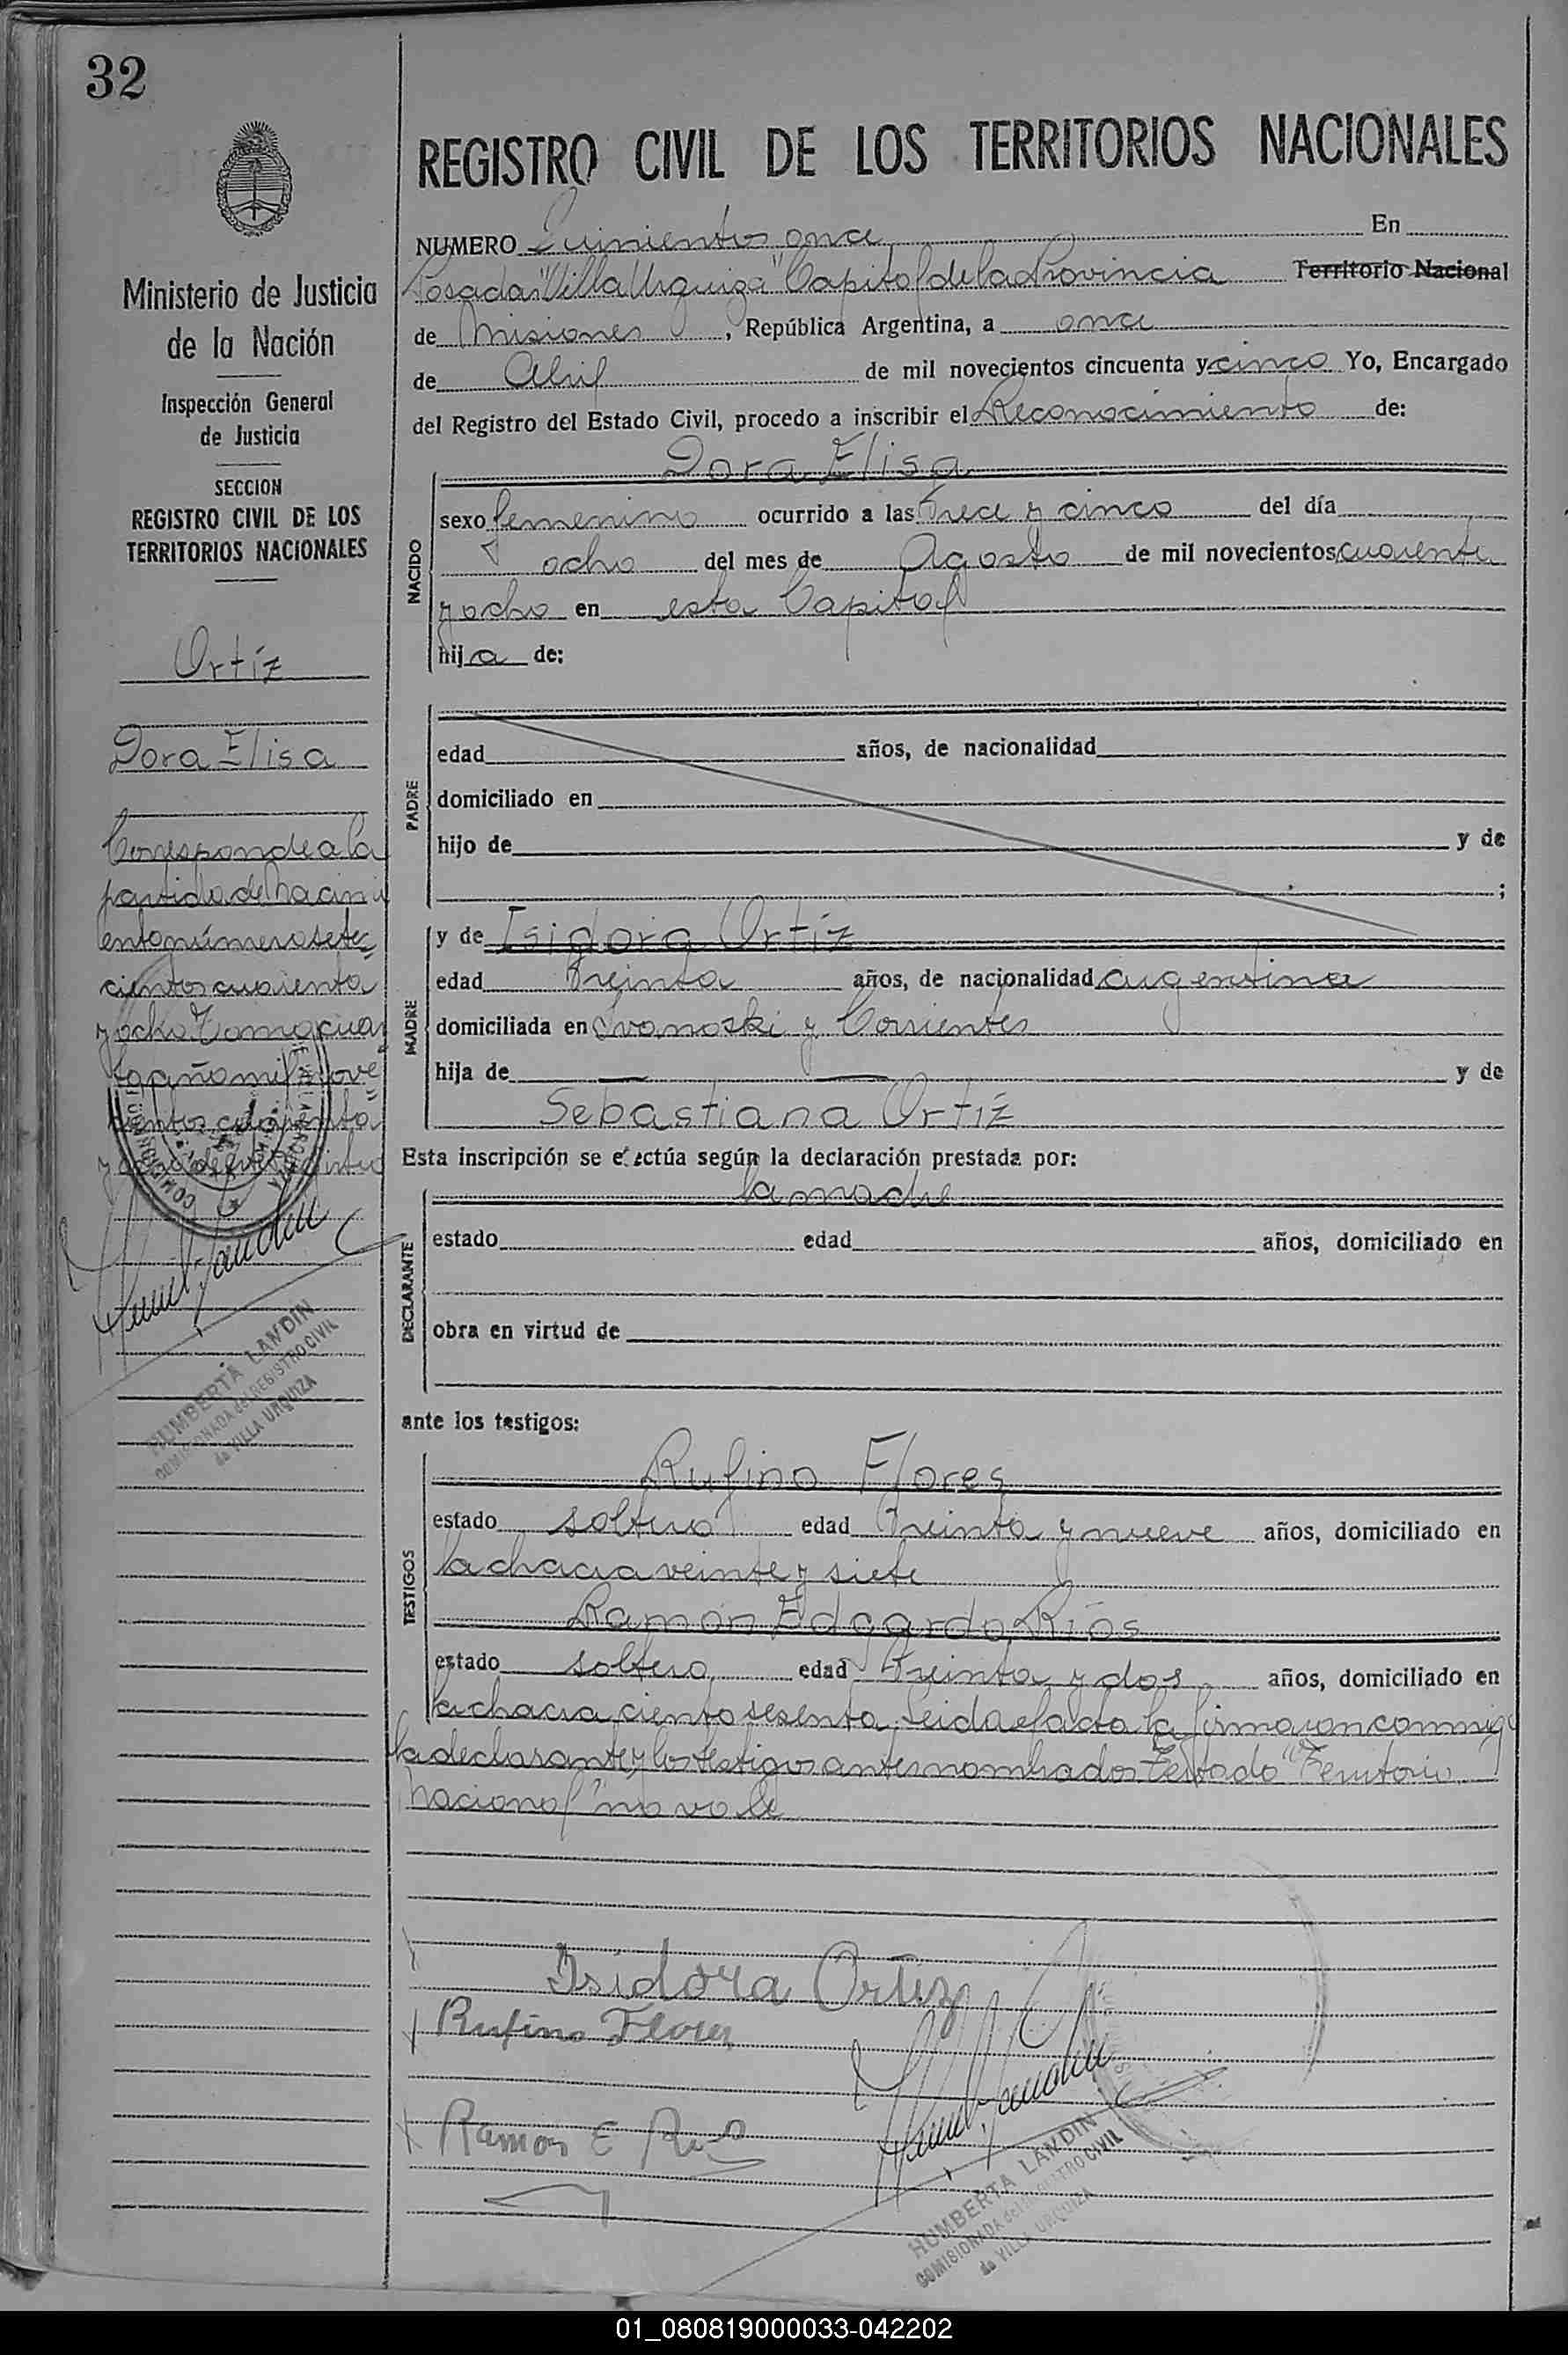 32
REGISTRO CIVIL DE LOS TERRITORIOS NACIONALES
Ministerio de Justicia
de la Nación
Inspección General
de Justicia
SECCION
REGISTRO CIVIL DE LOS
TERRITORIOS NACIONALES
Ortíz
Dora Elisa
Corresponde a la
partida de Nacimi
ento número sete=
cientos cuarenta
y ocho Tomo cuar
to año mil nove=
cientos cuarenta
y ocho de este
HUMBERTA LANDIN
COMISIONADA del REGISTRO CIVIL
de VILLA URQUIZA
NUMERO Quinientos once En
Posadas "Villa Urquiza" Capital de la Provincia Territorio Nacional
de Misiones, República Argentina, a once
de Abril de mil novecientos cincuenta y cinco Yo, Encargado
del Registro del Estado Civil, procedo a inscribir el Reconocimiento de:
NACIDO
Dora Elisa
sexo femenino ocurrido a las trece y cinco del día
ocho del mes de Agosto de mil novecientos cuarenta
y ocho en esta Capital
hija de:
PADRE
edad años, de nacionalidad
domiciliado en
hijo de y de
;
MADRE
y de Isidora Ortíz
edad treinta años, de nacionalidad argentina
domiciliada en Ivanoski y Corrientes
hija de — — y de
Sebastiana Ortíz
Esta inscripción se efectúa según la declaración prestada por:
DECLARANTE
la madre
estado edad años, domiciliado en
obra en virtud de
ante los testigos:
TESTIGOS
Rufino Flores
estado soltero edad treinta y nueve años, domiciliado en
la chacra veinte y siete
Ramón Edgardo Ríos
estado soltero edad treinta y dos años, domiciliado en
la chacra ciento sesenta. Leida el acta la firmaron conmigo
la declarante y los testigos antes nombrados Testado "Territorio
Nacional" no vale
Isidora Ortiz
Rufino Flores
Ramon E Rios
HUMBERTA LANDIN
COMISIONADA del REGISTRO CIVIL
de VILLA URQUIZA
01_080819000033-042202